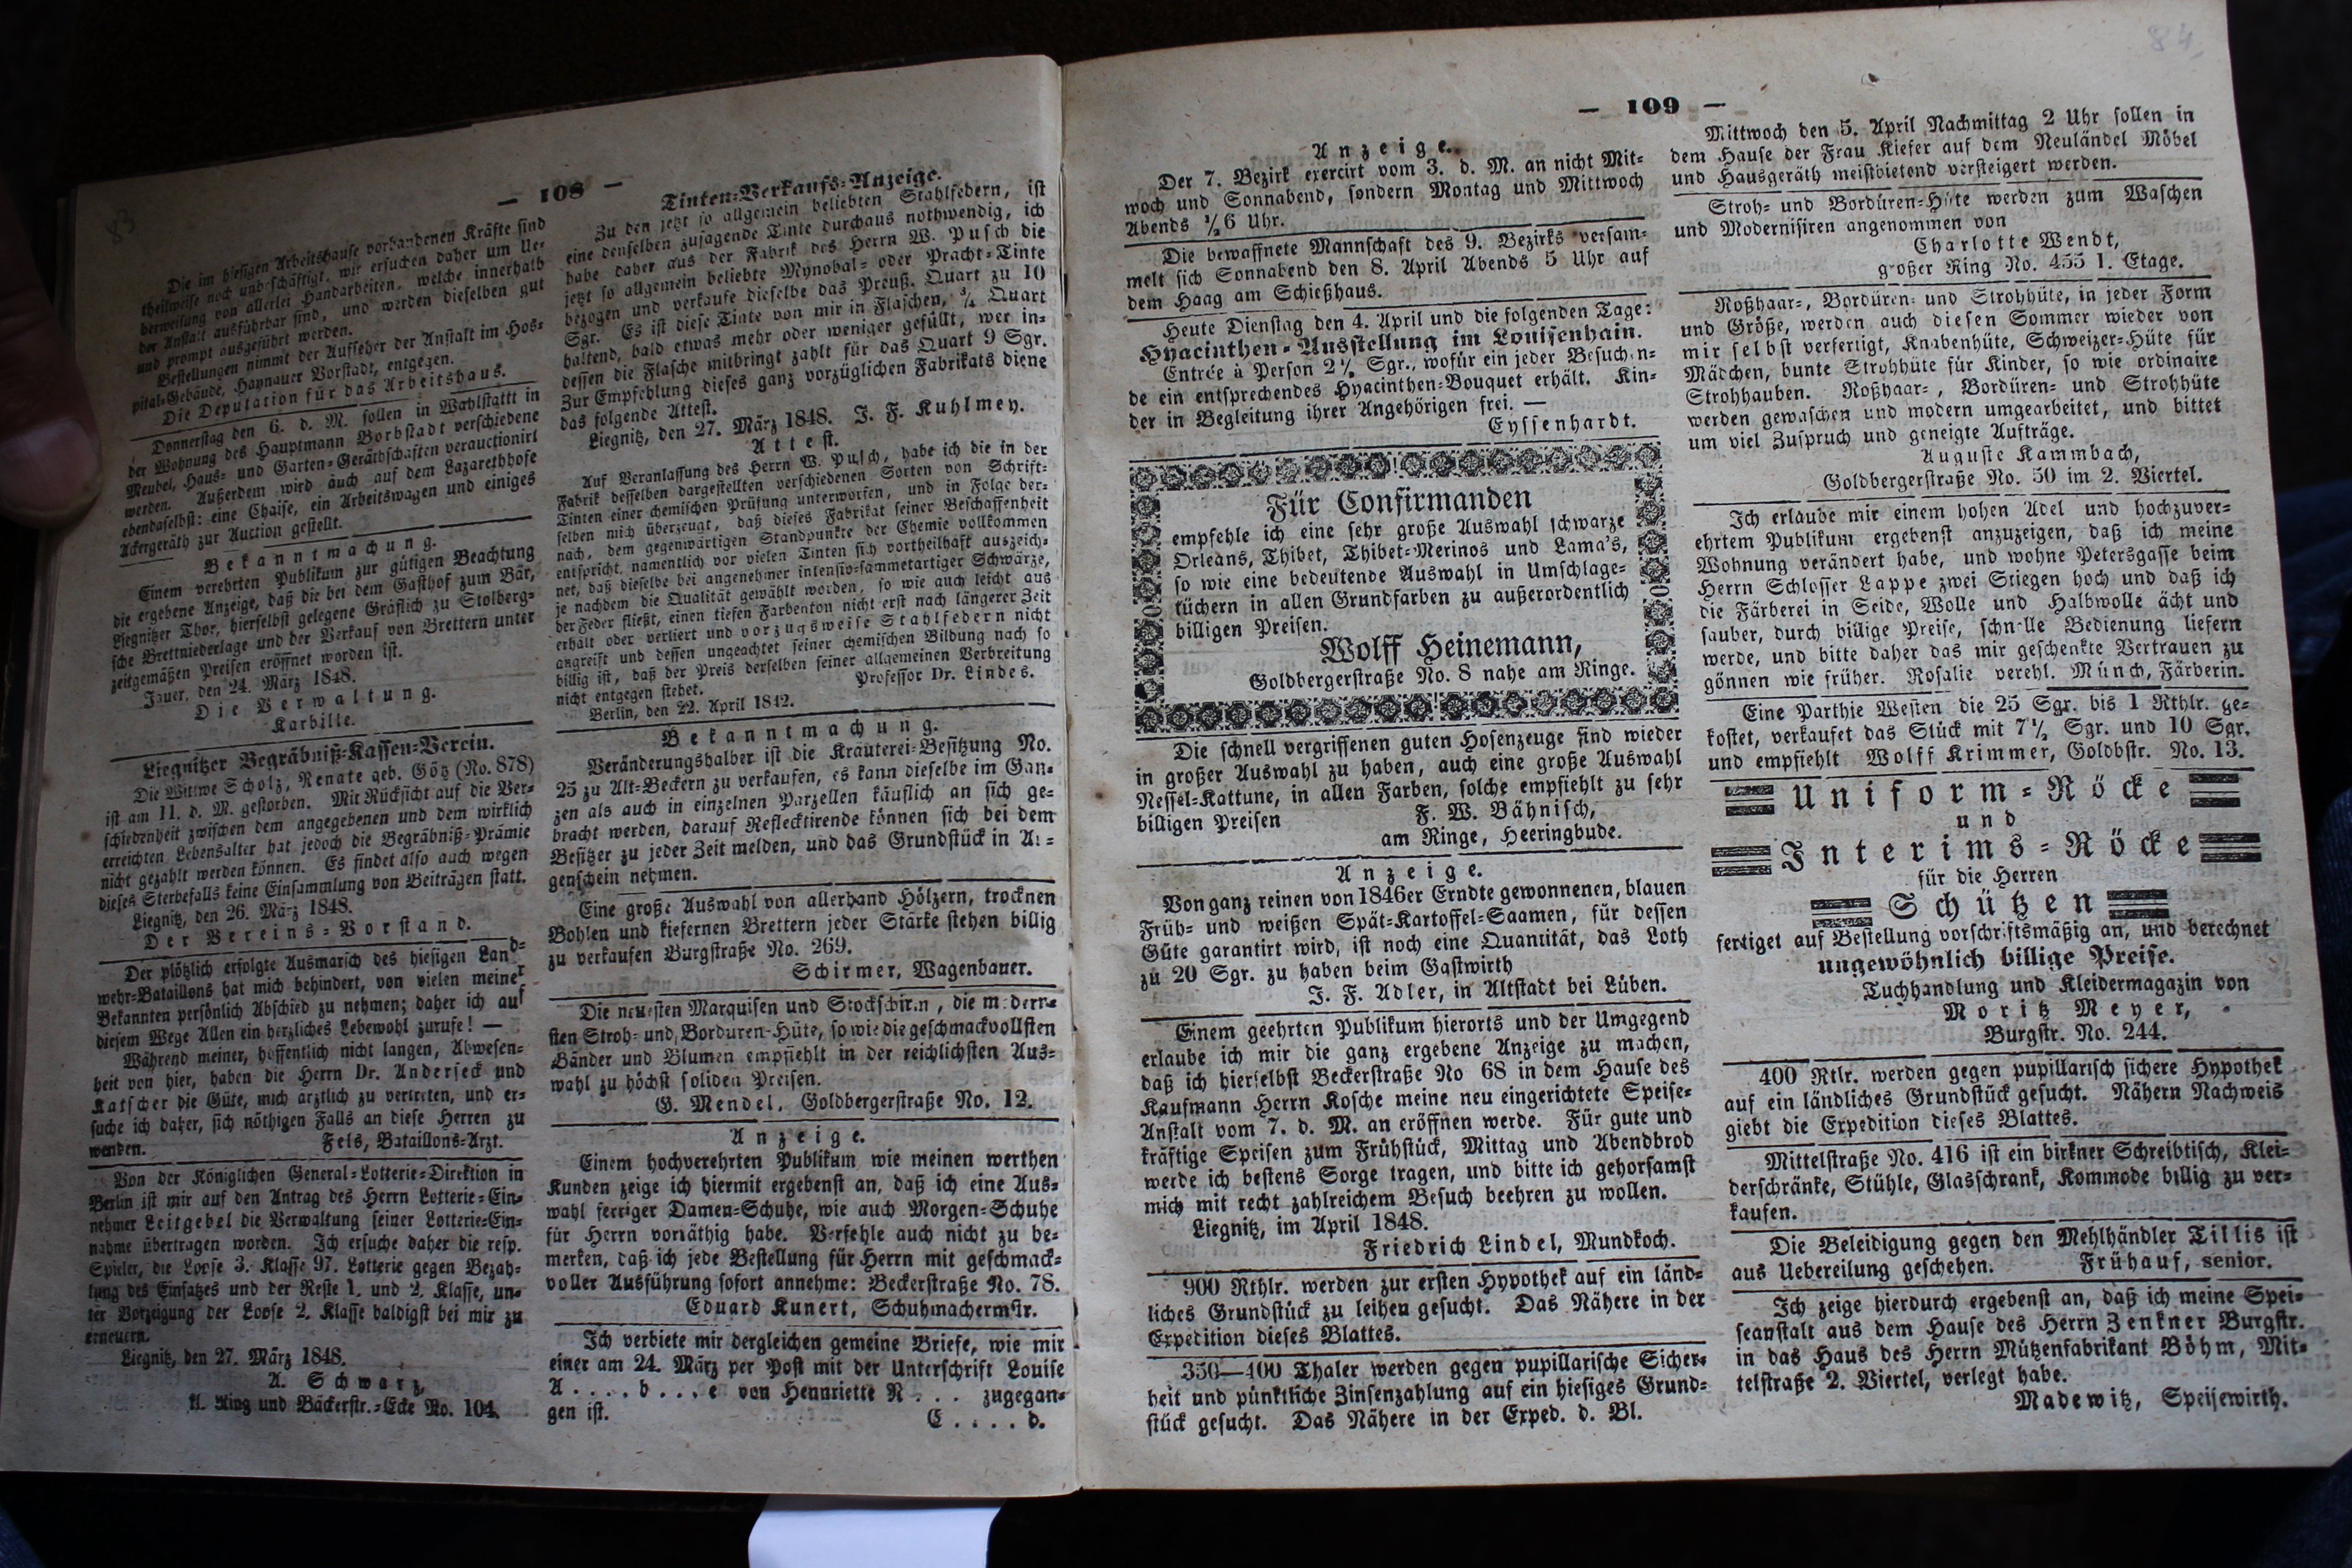 83
— 108 —
Die im hiesigen Arbeitshause vorhandenen Kräfte sind
theilweise noch unbeschäftigt, wir ersuchen daher um Ue-
berweisung von allerlei Handarbeiten, welche innerhalb
der Anstalt ausführbar sind, und werden dieselben gut
und prompt ausgeführt werden.
Bestellungen nimmt der Aufseher der Anstalt im Hos-
pital-Gebäude, Haynauer Vorstadt, entgegen.
Die Deputation für das Arbeitshaus.
Donnerstag den 6. d. M. sollen in Wahlstattt in
der Wohnung des Hauptmann Borbstadt verschiedene
Meubel, Haus- und Garten-Geräthschaften verauctionirt
werden. Außerdem wird auch auf dem Lazarethhofe
ebendaselbst: eine Chaise, ein Arbeitswagen und einiges
Ackergeräth zur Auction gestellt.
Bekanntmachung.
Einem verehrten Publikum zur gütigen Beachtung
die ergebene Anzeige, daß die bei dem Gasthof zum Bär,
Liegnitzer Thor, hierselbst gelegene Gräflich zu Stolberg-
sche Brettniederlage und der Verkauf von Brettern unter
zeitgemäßen Preisen eröffnet worden ist.
Jauer, den 24. März 1848.
Die Verwaltung.
Karbille.
Liegnitzer Begräbniß-Kassen-Verein.
Die Wittwe Scholz, Renate geb. Götz (No. 878)
ist am 11. d. M. gestorben. Mit Rücksicht auf die Ver-
schiedenheit zwischen dem angegebenen und dem wirklich
erreichten Lebensalter hat jedoch die Begräbniß-Prämie
nicht gezahlt werden können. Es findet also auch wegen
dieses Sterbefalls keine Einsammlung von Beiträgen statt.
Liegnitz, den 26. März 1848.
Der Vereins-Vorstand.
Der plötzlich erfolgte Ausmarsch des hiesigen Land-
wehr-Bataillons hat mich behindert, von vielen meiner
Bekannten persönlich Abschied zu nehmen; daher ich auf
diesem Wege Allen ein herzliches Lebewohl zurufe! —
Während meiner, hoffentlich nicht langen, Abwesen-
heit von hier, haben die Herrn Dr. Anderseck und
Katscher die Güte, mich ärztlich zu vertreten, und er-
suche ich daher, sich nöthigen Falls an diese Herren zu
wenden. Fels, Bataillons-Arzt.
Von der Königlichen General-Lotterie-Direktion in
Berlin ist mir auf den Antrag des Herrn Lotterie-Ein-
nehmer Leitgebel die Verwaltung seiner Lotterie-Ein-
nahme übertragen worden. Ich ersuche daher die resp.
Spieler, die Loose 3. Klasse 97. Lotterie gegen Bezah-
lung des Einsatzes und der Reste 1. und 2. Klasse, un-
ter Vorzeigung der Loose 2. Klasse baldigst bei mir zu
erneuern.
Liegnitz, den 27. März 1848.
A. Schwarz,
kl. Ring und Bäckerstr.-Ecke No. 104.
Tinten-Verkaufs-Anzeige.
Zu den jetzt so allgemein beliebten Stahlfedern, ist
eine denselben zusagende Tinte durchaus nothwendig, ich
habe daher aus der Fabrik des Herrn W. Pusch die
jetzt so allgemein beliebte Mynobal- oder Pracht-Tinte
bezogen und verkaufe dieselbe das Preuß. Quart zu 10
Sgr. Es ist diese Tinte von mir in Flaschen, ¾ Quart
haltend, bald etwas mehr oder weniger gefüllt, wer in-
dessen die Flasche mitbringt zahlt für das Quart 9 Sgr.
Zur Empfehlung dieses ganz vorzüglichen Fabrikats diene
das folgende Attest.
Liegnitz, den 27. März 1848. J. F. Kuhlmey.
Attest.
Auf Veranlassung des Herrn W. Pusch, habe ich die in der
Fabrik desselben dargestellten verschiedenen Sorten von Schrift-
Tinten einer chemischen Prüfung unterworfen, und in Folge der-
selben mich überzeugt, daß dieses Fabrikat seiner Beschaffenheit
nach, dem gegenwärtigen Standpunkte der Chemie vollkommen
entspricht, namentlich vor vielen Tinten sich vortheilhaft auszeich-
net, daß dieselbe bei angenehmer intensiv-sammetartiger Schwärze,
je nachdem die Qualität gewählt worden, so wie auch leicht aus
der Feder fließt, einen tiefen Farbenton nicht erst nach längerer Zeit
erhält oder verliert und vorzugsweise Stahlfedern nicht
angreift und dessen ungeachtet seiner chemischen Bildung nach so
billig ist, daß der Preis derselben seiner allgemeinen Verbreitung
nicht entgegen stehet. Professor Dr. Lindes.
Berlin, den 22. April 1842.
Bekanntmachung.
Veränderungshalber ist die Kräuterei-Besitzung No.
25 zu Alt-Beckern zu verkaufen, es kann dieselbe im Gan-
zen als auch in einzelnen Parzellen käuflich an sich ge-
bracht werden, darauf Reflecktirende können sich bei dem
Besitzer zu jeder Zeit melden, und das Grundstück in Au-
genschein nehmen.
Eine große Auswahl von allerhand Hölzern, trocknen
Bohlen und kiefernen Brettern jeder Stärke stehen billig
zu verkaufen Burgstraße No. 269.
Schirmer, Wagenbauer.
Die neuesten Marquisen und Stockschirm, die modern-
sten Stroh- und Borduren-Hüte, so wie die geschmackvollsten
Bänder und Blumen empfiehlt in der reichlichsten Aus-
wahl zu höchst soliden Preisen.
G. Mendel, Goldbergerstraße No. 12.
Anzeige.
Einem hochverehrten Publikum wie meinen werthen
Kunden zeige ich hiermit ergebenst an, daß ich eine Aus-
wahl fertiger Damen-Schuhe, wie auch Morgen-Schuhe
für Herrn vorräthig habe. Verfehle auch nicht zu be-
merken, daß ich jede Bestellung für Herrn mit geschmack-
voller Ausführung sofort annehme: Beckerstraße No. 78.
Eduard Kunert, Schuhmachermstr.
Ich verbiete mir dergleichen gemeine Briefe, wie mir
einer am 24. März per Post mit der Unterschrift Louise
A....b...e von Hennriette N... zugegan-
gen ist. C....d.
84.
— 109 —
Anzeige.
Der 7. Bezirk exercirt vom 3. d. M. an nicht Mit-
woch und Sonnabend, sondern Montag und Mittwoch
Abends ½6 Uhr.
Die bewaffnete Mannschaft des 9. Bezirks versam-
melt sich Sonnabend den 8. April Abends 5 Uhr auf
dem Haag am Schießhaus.
Heute Dienstag den 4. April und die folgenden Tage:
Hyacinthen-Ausstellung im Louisenhain.
Entrée à Person 2½ Sgr., wofür ein jeder Besuchen-
de ein entsprechendes Hyacinthen-Bouquet erhält. Kin-
der in Begleitung ihrer Angehörigen frei. —
Eyssenhardt.
Für Confirmanden
empfehle ich eine sehr große Auswahl schwarze
Orleans, Thibet, Thibet-Merinos und Lama's,
so wie eine bedeutende Auswahl in Umschlage-
tüchern in allen Grundfarben zu außerordentlich
billigen Preisen.
Wolff Heinemann,
Goldbergerstraße No. 8 nahe am Ringe.
Die schnell vergriffenen guten Hosenzeuge sind wieder
in großer Auswahl zu haben, auch eine große Auswahl
Nessel-Kattune, in allen Farben, solche empfiehlt zu sehr
billigen Preisen F. W. Bähnisch,
am Ringe, Heeringbude.
Anzeige.
Von ganz reinen von 1846er Erndte gewonnenen, blauen
Früh- und weißen Spät-Kartoffel-Saamen, für dessen
Güte garantirt wird, ist noch eine Quantität, das Loth
zu 20 Sgr. zu haben beim Gastwirth
J. F. Adler, in Altstadt bei Lüben.
Einem geehrten Publikum hierorts und der Umgegend
erlaube ich mir die ganz ergebene Anzeige zu machen,
daß ich hierselbst Beckerstraße No 68 in dem Hause des
Kaufmann Herrn Kosche meine neu eingerichtete Speise-
Anstalt vom 7. d. M. an eröffnen werde. Für gute und
kräftige Speisen zum Frühstück, Mittag und Abendbrod
werde ich bestens Sorge tragen, und bitte ich gehorsamst
mich mit recht zahlreichem Besuch beehren zu wollen.
Liegnitz, im April 1848.
Friedrich Lindel, Mundkoch.
900 Rthlr. werden zur ersten Hypothek auf ein länd-
liches Grundstück zu leihen gesucht. Das Nähere in der
Expedition dieses Blattes.
350—400 Thaler werden gegen pupillarische Sicher-
heit und pünktliche Zinsenzahlung auf ein hiesiges Grund-
stück gesucht. Das Nähere in der Exped. d. Bl.
Mittwoch den 5. April Nachmittag 2 Uhr sollen in
dem Hause der Frau Kiefer auf dem Neuländel Möbel
und Hausgeräth meistbietend versteigert werden.
Stroh- und Bordüren-Hüte werden zum Waschen
und Modernisiren angenommen von
Charlotte Wendt,
großer Ring No. 455 1. Etage.
Roßhaar-, Bordüren- und Strohhüte, in jeder Form
und Größe, werden auch diesen Sommer wieder von
mir selbst verfertigt, Knabenhüte, Schweizer-Hüte für
Mädchen, bunte Strohhüte für Kinder, so wie ordinaire
Strohhauben. Roßhaar-, Bordüren- und Strohhüte
werden gewaschen und modern umgearbeitet, und bittet
um viel Zuspruch und geneigte Aufträge.
Auguste Kammbach,
Goldbergerstraße No. 50 im 2. Viertel.
Ich erlaube mir einem hohen Adel und hochzuver-
ehrtem Publikum ergebenst anzuzeigen, daß ich meine
Wohnung verändert habe, und wohne Petersgasse beim
Herrn Schlosser Lappe zwei Stiegen hoch und daß ich
die Färberei in Seide, Wolle und Halbwolle ächt und
sauber, durch billige Preise, schnelle Bedienung liefern
werde, und bitte daher das mir geschenkte Vertrauen zu
gönnen wie früher. Rosalie verehl. Münch, Färberin.
Eine Parthie Westen die 25 Sgr. bis 1 Rthlr. ge-
kostet, verkaufet das Stück mit 7½ Sgr. und 10 Sgr.
und empfiehlt Wolff Krimmer, Goldbstr. No. 13.
Uniform-Röcke
und
Interims-Röcke
für die Herren
Schützen
fertiget auf Bestellung vorschriftsmäßig an, und berechnet
ungewöhnlich billige Preise.
Tuchhandlung und Kleidermagazin von
Moritz Meyer,
Burgstr. No. 244.
400 Rtlr. werden gegen pupillarisch sichere Hypothek
auf ein ländliches Grundstück gesucht. Nähern Nachweis
giebt die Expedition dieses Blattes.
Mittelstraße No. 416 ist ein birkner Schreibtisch, Klei-
derschränke, Stühle, Glasschrank, Kommode billig zu ver-
kaufen.
Die Beleidigung gegen den Mehlhändler Tillis ist
aus Uebereilung geschehen. Frühauf, senior.
Ich zeige hierdurch ergebenst an, daß ich meine Spei-
seanstalt aus dem Hause des Herrn Zenkner Burgstr.
in das Haus des Herrn Mützenfabrikant Böhm, Mit-
telstraße 2. Viertel, verlegt habe.
Madewitz, Speisewirth.